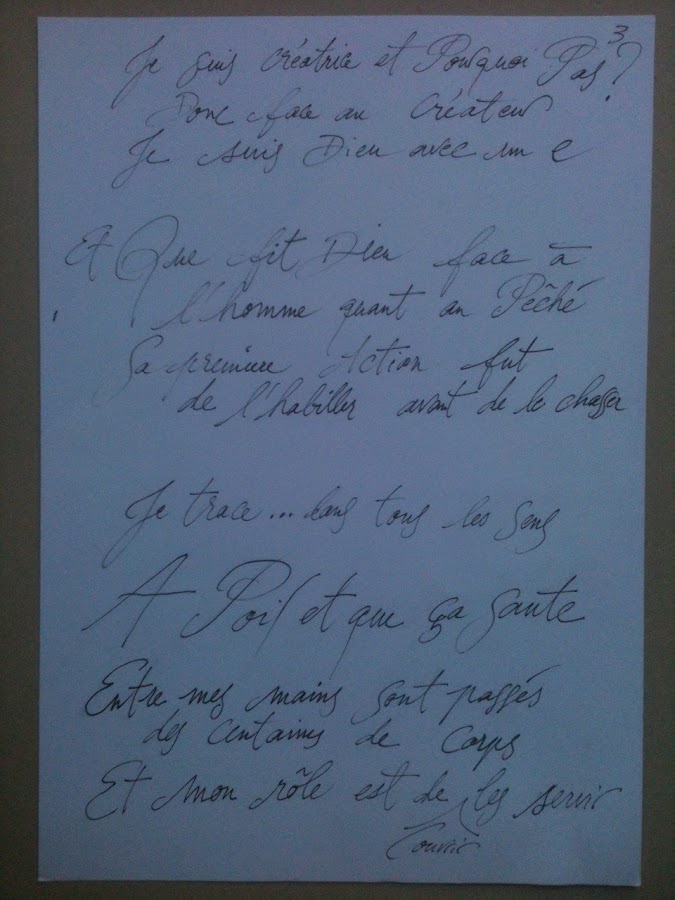 3
Je suis créatrice et Pourquoi Pas ?
Donc face au Créateur
Je suis Dieu avec un e
Et Que fit Dieu face à
l'homme quant au Pêché
Sa première Action fut
de l'habiller avant de le chasser
Je trace... dans tous les sens
A Poil et que ça saute
Entre mes mains sont passés
des centaines de corps
Et mon rôle est de les servir